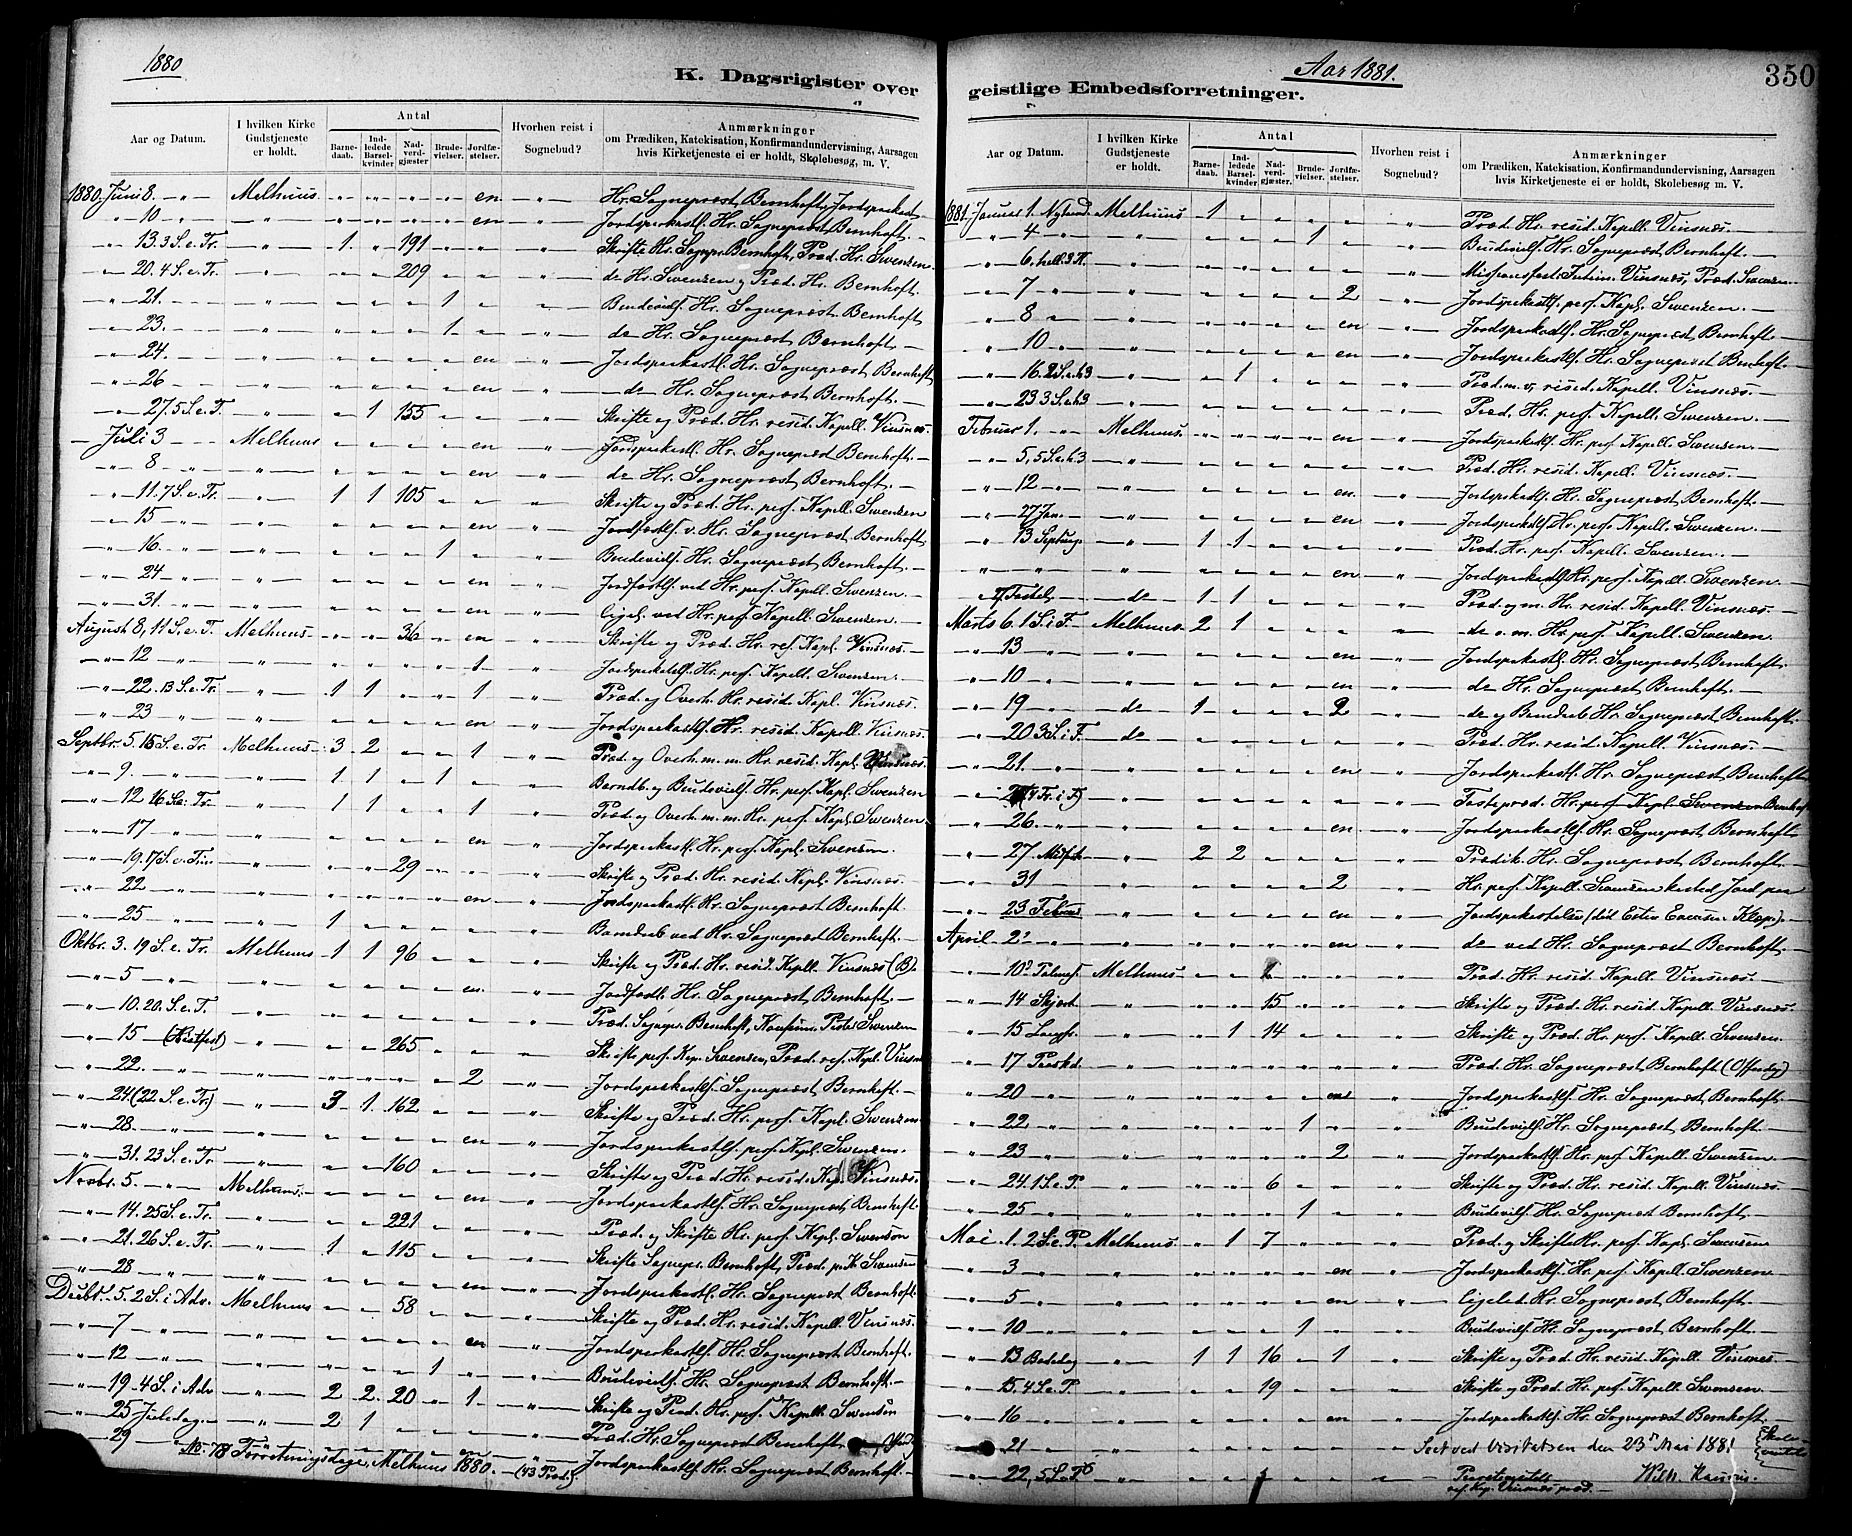 1880
K. Dagsrigister over
Aar og Datum. I hvilken Kirke Gudstjeneste er holdt. Antal Barnedaab. Indledede Barselkvinder Nadverdgjæster Brudevielser. Jordfæstelser. Hvorhen reist i Sognebud? Anmærkninger om Prædiken, Katekisation, Konfirmandundervisning, Aarsagen hvis Kirketjeneste ei er holdt, Skolebesøg, m. V.
1880. Juni 8. Melhuus en Hr. Sognepræst Bernhoft, Jordspaakast
" 10 " en Jordspaakastl. Hr. Sognepræst Bernhoft.
" 13. 3 S. e. Tr. " 1. " 191 Skrifte Hr. Sognepr. Bernhoft, Præd. Hr. Swenzen.
" 20. 4 S. e. Tr. " 209 do Hr. Swenzen og Præd. Hr. Bernhoft.
" 21. " 1 Brudevielsf. Hr. Sognepræst Bernhoft
" 23. " 1 do Hr. Sognepræst Bernhoft.
" 24. " en Jordspaakastl. Hr. Sognepræst Bernhoft
" 26 " en do Hr. Sognepræst Bernhoft.
" 27. 5 S. e. T. " 1 155 Skrifte og Præd. Hr. resid. Kapell. Vinsnes.
Juli 3 Melhuus en Jordspaakastl. Hr. Sognepræst Bernhoft.
" 8 " en do Hr. Sognepræst Bernhoft.
" 11. 7 S. e. Tr. " 1 1 105 Skrifte og Præd. Hr. pers. Kapell. Swenzen
" 15 " en Jordfæstlf. v. Hr. Sognepræst Bernhoft
" 16. " 1 Brudevielsf. Hr. Sognepræst Bernhoft.
" 24 " en Jordfæstlf. ved Hr. pers. Kapell. Swenzen.
" 31. " en Ligel. ved Hr. pers. Kapell. Swenzen.
August 8, 11 S. e. T. Melhuus 36 en Skrifte og Præd. Hr. res. Kapl. Vinsnæs.
" 12 " 1 Jordspaakastlf. Hr. pers. Kapell. Swenzen.
" 22. 13 S. e. Tr. " 1 1 1 Præd. og Overh. Hr. resid. Kapell. Vinsnæs.
" 23 " en Jordspaakastlf. Hr. resid. Kapell. Vinsnæs.
Septbr. 5. 15 S. e. Tr. Melhuus 3 2 1 Præd. og Overh. m. m. Hr. resid. Kapl. Vinsnæs.
" 9. " 1 1 1 Barndb. og Brudevielsf. Hr. pers. Kapl. Swenzen
" 12 16 S. e. Tr. " 1 1 1 Præd. og Overh. m. m. Hr. pers. Kapl. Swenzen
" 17 " en Jordspaakastl. Hr. pers. Kapl. Swenzen.
" 19. 17 S. e. Trin " 29 Skrifte og Præd. Hr. resid. Kapl. Vinsnæs.
" 22 " en Jordspaakastl. Hr. Sognepræst Bernhoft
" 25 " 1 Barndaab ved Hr. Sognepræst Bernhoft.
Oktbr. 3. 19 S. e. Tr. Melhuus 1 1 96 Skrifte og Præd. Hr. resid. Kapell. Vinsnæs (B).
" 5 " en Jordfæstl. Hr. Sognepræst Bernhoft.
" 10. 20. S. e. T. Præd. Sognepr. Bernhoft, Swenzen
" 15 " 265 Skrifte pers. Kap. Swenzen, Præd. res. Kapl. Vinsnæs
" 22. " 2 Jordspaakastlf. Sognepræst Bernhoft.
" 24 (22 S. e. Tr.) " 3 1 162 Skrifte og Præd. Hr. pers. Kapl. Swenzen
" 28. " en Jordspaakastlf. pers. Kapl. Swenzen.
" 31. 23 S. e. Tr. " 160 Skrifte og Præd. Hr. resid. Kap. Vinsnæs.
Novbr. 5. Melhuus. en Jordspaakastlf. Hr. Sognepræst Bernhoft.
" 14. 25 S. e. Tr. " 221 Præd. og Skrifte Hr. pers. Kapl. Swenson
" 21. 26 S. e. Tr. " 1 115 Skrifte Sognepr. Bernhoft, Præd. p. K. Swensen
" 28 " en Jordspaakastl. Hr. Sognepræst Bernhoft.
Decbr. 5. 2 S. i Adv. Melhuus 58 Skrifte og Præd. Hr. resid. Kapell. Vinsnæs.
" 7 " en Jordspaakastlf. Hr. Sognepræst Bernhoft.
" 12 " 1 Brudevielsf. Hr. Sognepræst Bernhoft.
" 19. 4 S. i Adv. " 2 2 20 1 Skrifte og Præd. Hr. pers. Kapell. Swenson
" 25 Juledag. " 2 1 Præd. Hr. Sognepræst Bernhoft.
" 29 Jordspaakastlf. Hr. Sognepræst Bernhoft.
No. 78 Forretningsdage, Melhuus 1880. (43 Præd.)
Aar 1881.
350
geistlige Embedsforretninger.
Aar og Datum. I hvilken Kirke Gudstjeneste er holdt. Antal Barnedaab. Indledede Barselkvinder Nadverdgjæster. Brudevielser. Jordfæstelser. Hvorhen reist i Sognebud? Anmærkninger om Prædiken, Katekisation, Konfirmandundervisning, Aarsagen hvis Kirketjeneste ei er holdt, Skolebesøg m. V.
1881. Januar 1. Nytaar Melhuus 1 Præd. Hr. resid. Kapell. Vinsnæs.
" 4 " 1 Brudevielsf. Hr. Sognepræst Bernhoft.
" 6. hell. 3 K. " Missionsfest: Vinsnæs, Præd. Swenzen.
" 7 " 2 Jordspaakastlf. pers. Kapl. Swenzen.
" 8 " en Jordspaakastlf. Hr. Sognepræst Bernhoft.
" 10 " en Jordspaakastlf. Hr. Sognepræst Bernhoft.
" 16. 2 S. e. h. 3 " 1 Præd. m. v. resid. Kapell. Vinsnæs.
" 23 3 S. e. h. 3 Præd. Hr. pers. Kapell. Swenzen.
Februar 1. Melhuus. en Jordspaakastlf. Hr. pers. Kapell. Swenzen.
" 5, 5 S. e. h. 3 Præd. Hr. resid. Kapell. Vinsnæs.
" 12 " en Jordspaakastlf. Hr. Sognepræst Bernhoft.
" 27 Jan. " en Jordspaakastlf. Hr. pers. Kapell. Swenzen.
" 13 Septuag. " 1 1 Præd. Hr. pers. Kapell. Swenzen.
" " en Jordspaakastlf. Hr. pers. Kapell. Swenzen.
" Fastel. do 1 1 Præd. og m. Hr. resid. Kapell. Vinsnæs.
Marts 6. 1 S. i F. Melhuus 2 1 do o. m. Hr. pers. Kapell. Swenzen.
" 13 en Jordspaakastl. Hr. Sognepræst Bernhoft.
" 10 " en do Hr. Sognepræst Bernhoft.
" 19 do 1 2 do og Barndaab Hr. Sognepræst Bernhoft.
" 20. 3 S. i F. do Præd. Hr. resid. Kapell. Vinsnæs.
" 21. " en Jordspaakastl. Hr. Sognepræst Bernhoft
" Fr. i F.) Fastepræd. Hr. pers. Kapl. Swenzen Bernhoft
" 26. " en Jordspaakastlf. Hr. Sognepræst Bernhoft.
" 27. Midf. " 2 2 Prædik. Hr. Sognepræst Bernhoft.
" 31 " 2 Hr. pers. Kapell. Swenzen kasted Jord paa
" 23 Februar " en Jordspaakastelse
April 2. " en do ved Hr. Sognepræst Bernhoft.
" 10. Palmes. Melhuus Præd. Hr. resid. Kapell. Vinsnæs.
" 14 Skjært. " 15 Skrifte og Præd. Hr. resid. Kapell. Vinsnæs.
" 15 Langfr. " 1 14 Skrifte og Præd. Hr. pers. Kapell. Swenzen.
" 17 Paaskd. Præd. Hr. Sognepræst Bernhoft (Offerdag)
" 20 " en Jordspaakastlf. Hr. Sognepræst Bernhoft.
" 22 " 1 Brudevielsf. Hr. Sognepræst Bernhoft.
" 23 " 2 Jordspaakastlf. Hr. pers. Kapell. Swenzen
" 24. 1 S. e. P. " 6 Skrifte og Præd. Hr. resid. Kapell. Vinsnæs.
" 25 " 1 Brudevielsf. Hr. Sognepræst Bernhoft.
Mai 1. 2 S. e. P. Melhuus 1 7 Præd. og Skrifte Hr. pers. Kapell. Swensen
" 3 " en Jordspaakastlf. Hr. pers. Kapell. Swenzen
" 5 " en Ligeled. Hr. Sognepræst Bernhoft.
" 10 " 1 Brudevielsf. Hr. Sognepræst Bernhoft.
" 13 Bededag " 1 1 16 1 Skrifte og Præd. Hr. resid. Kapell. Vinsnæs.
" 15. 4 S. e. P. 19 Skrifte og Præd. Hr. pers. Kapell. Swensen.
" 16 " en Jordspaakastlf. Hr. Sognepræst Bernhoft.
" 21 " Seet ved Visitatsen den 23de Mai 1881
" 22, 5 S. e. P. " res. Kap. Vinsnæs præd.